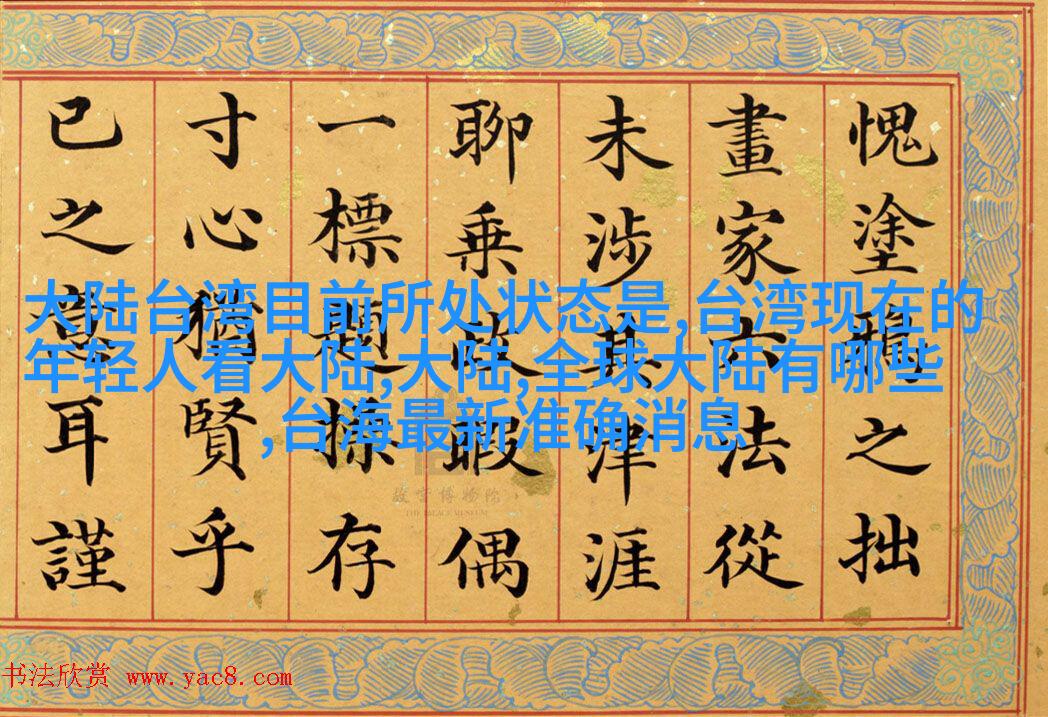 愧塗鴉之拙
畫家六法從
未涉其津涯
聊乘政暇偶
一標題操存
寸心猶賢乎
已之意耳謹
大陆台湾目前所处状态是,台湾现在的
年轻人看大陆,大陆,全球大陆有哪些
,台海最新准确消息
故宫博物院
THE PALACE MUSEUM
书法欣赏 www.yac8.com